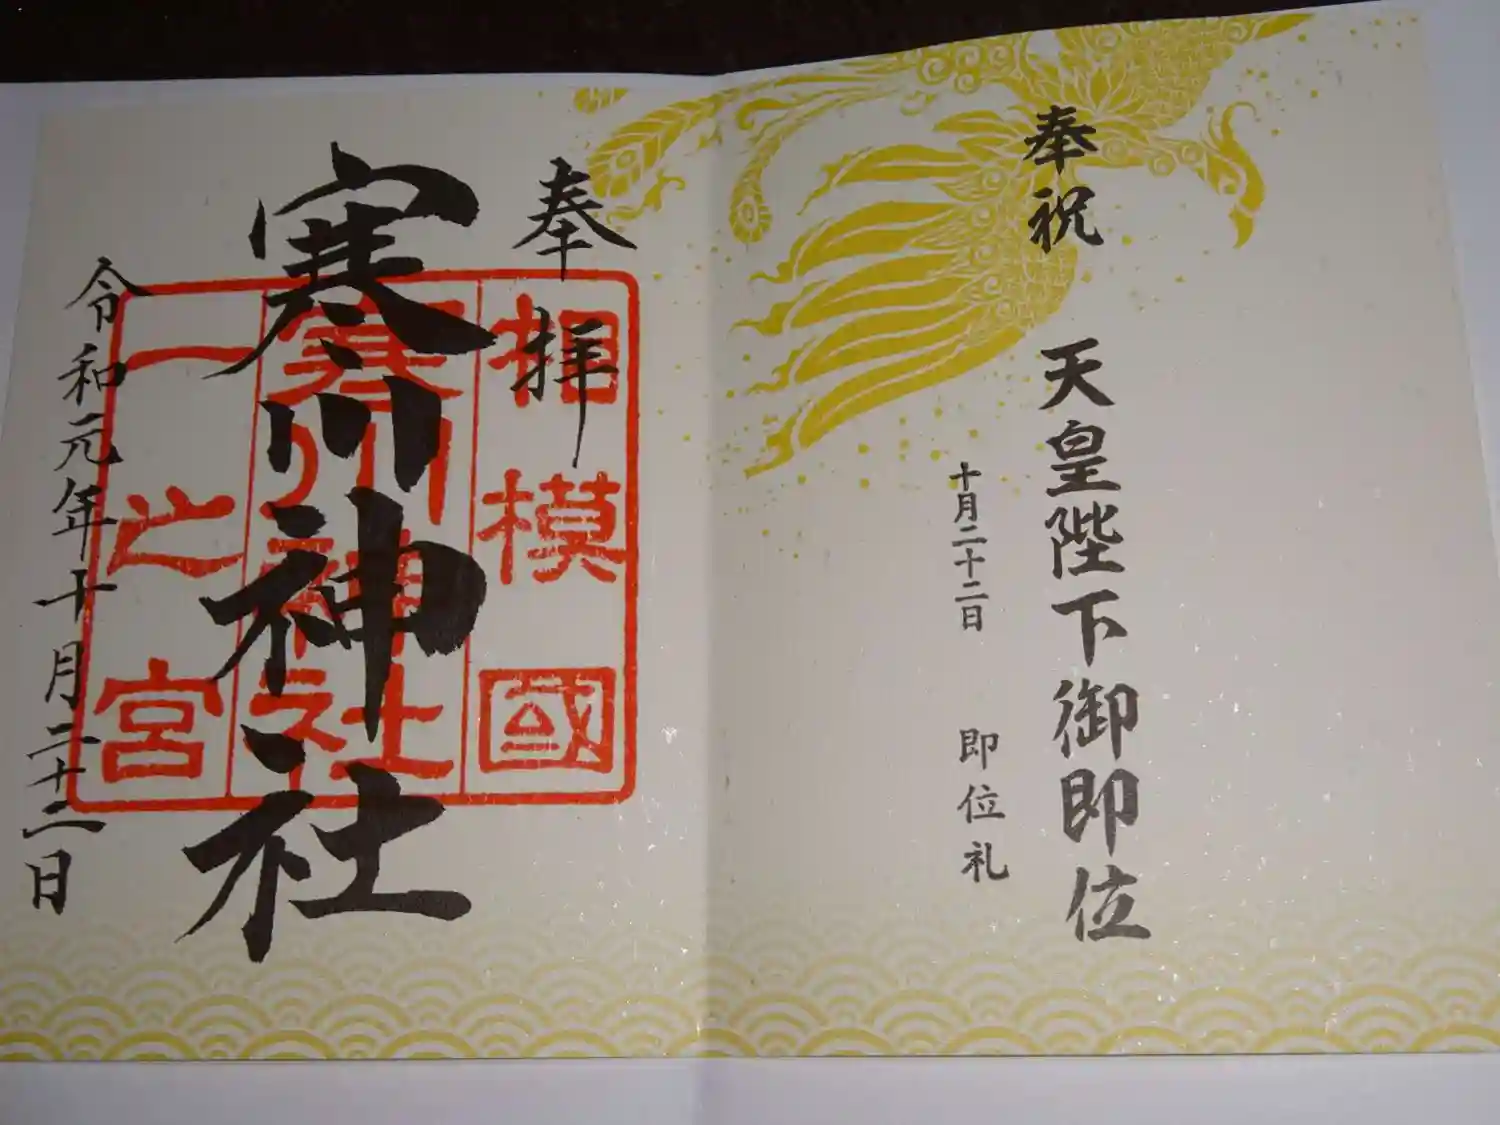 奉祝 天皇陛下御即位
十月二十二日 即位礼
奉拝
相模國
寒川神社
一之宮
寒川神社
令和元年十月二十二日